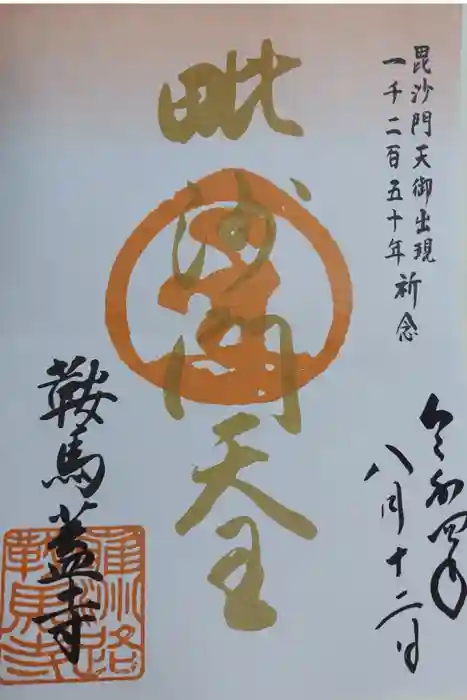 毘沙門天御出現
一千二百五十年 祈念
令和四年
八月十二日
毗沙門天王
鞍馬蓋寺